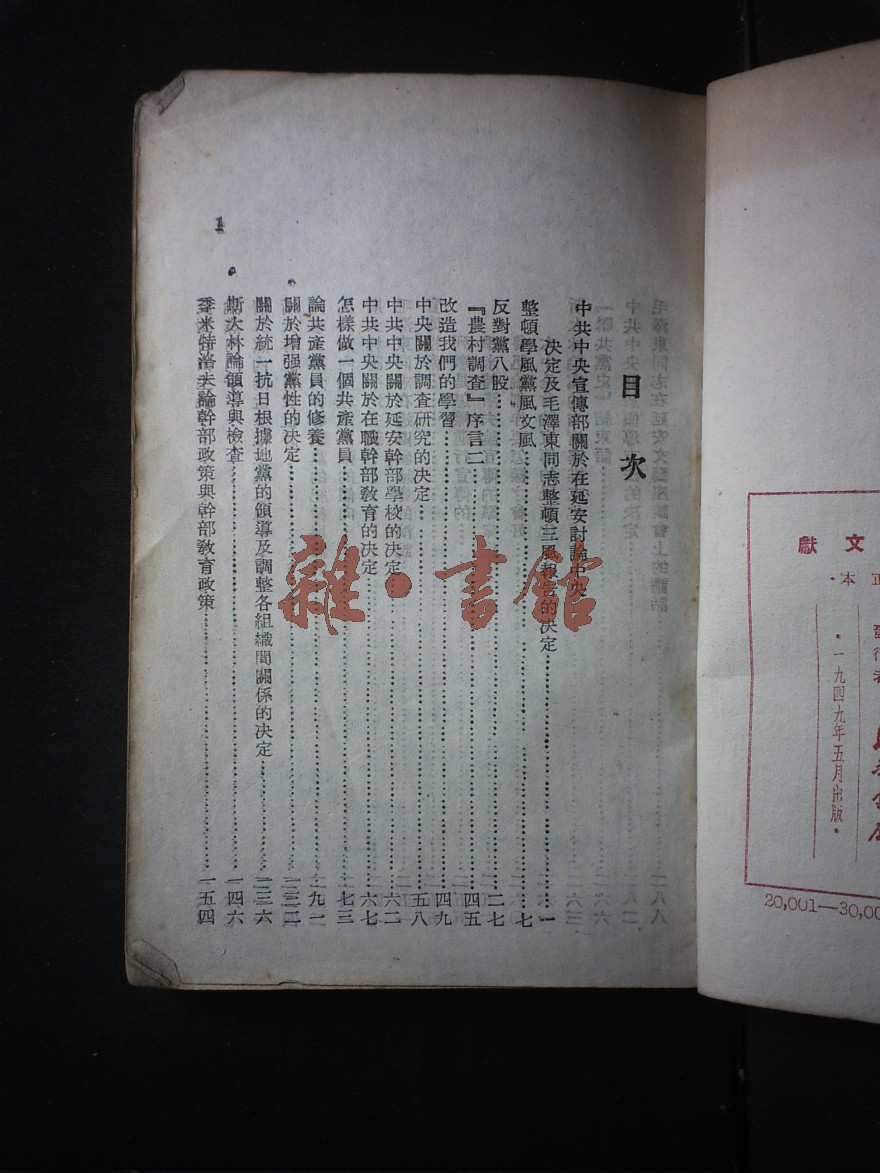 目次
中共中央宣傳部關於在延安討論中央
決定及毛澤東同志整頓三風報告的決定……一
整頓學風黨風文風……七
反對黨八股……二七
『農村調查』序言二……四五
改造我們的學習……四九
中央關於調查研究的決定……五八
中共中央關於延安幹部學校的決定……六二
中共中央關於在職幹部教育的決定……六七
怎樣做一個共產黨員……七三
論共產黨員的修養……九一
關於增强黨性的決定……一三二
關於統一抗日根據地黨的領導及調整各組織間關係的決定……一三六
斯大林論領導與檢查……一四六
季米特洛夫論幹部政策與幹部教育政策……一五四
1
文獻
·一九四九年五月出版·
20,001—30,00
雜·書館